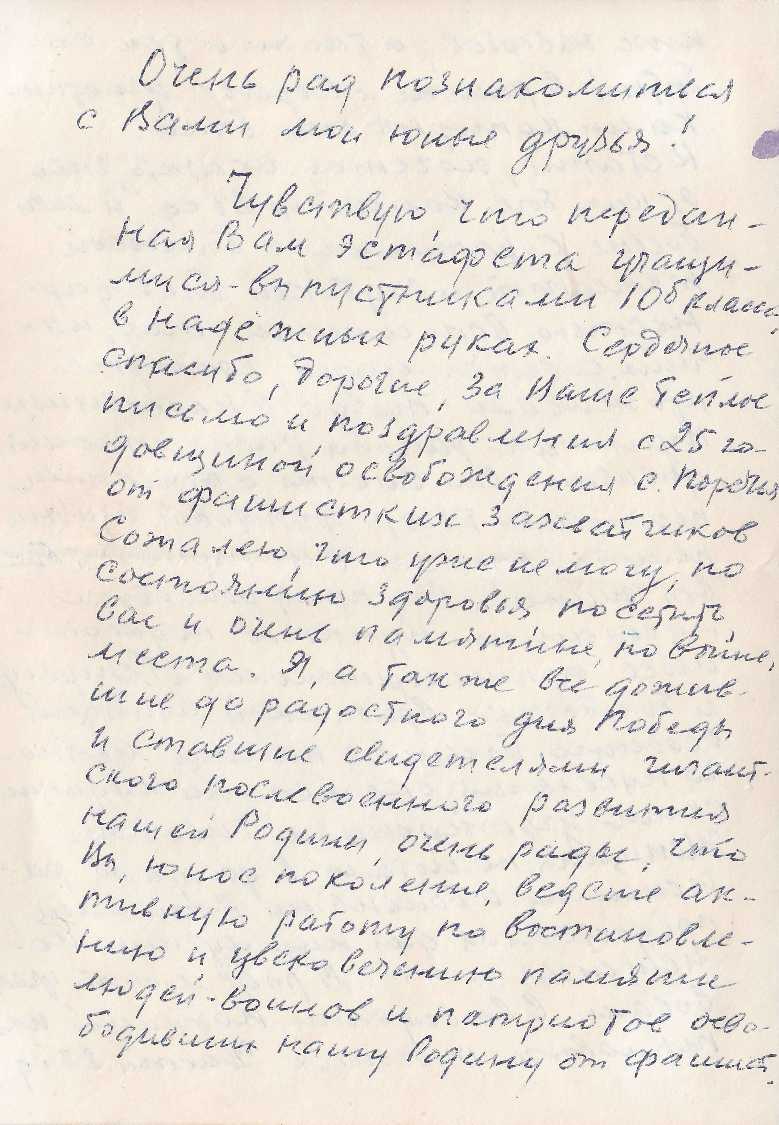 Очень рад познакомится
с Вами мои юные друзья!
Чувствую, что передан-
ная Вам эстафета учащи-
мися-выпустниками 10б класса,
в надежных руках. Сердечное
спасибо, дорогие, за Ваше теплое
письмо и поздравления с 25 го-
довщиной освобождения с. Поречья
от фашистких захватчиков
Сожалею, что уже не могу, по
состоянию здоровья посетить
Вас и очень памятные, по войне,
места. Я, а также все дожив-
шие до радостного дня Победы
и ставшие свидетелями гигант-
ского послевоенного развития
нашей Родины, очень рады, что
Вы, юное поколение, ведете ак-
тивную работу по востановле-
нию и увековечению памяти
людей-воинов и патриотов осво-
бодивших нашу Родину от фашист.